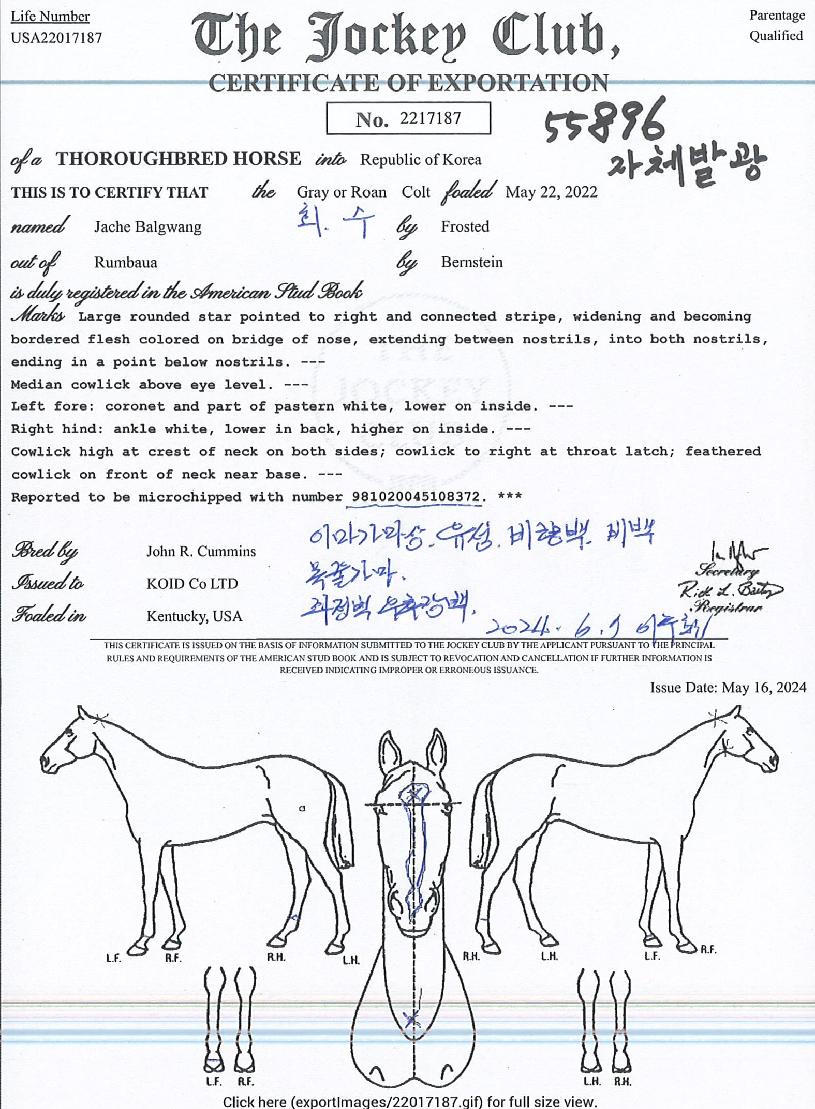 Life Number
USA22017187
Parentage
Qualified
The Jockey Club,
CERTIFICATE OF EXPORTATION
No. 2217187
55896
자체발광
of a THOROUGHBRED HORSE into Republic of Korea
THIS IS TO CERTIFY THAT the Gray or Roan Colt foaled May 22, 2022
회. 수
named Jache Balgwang by Frosted
out of Rumbaua by Bernstein
is duly registered in the American Stud Book
Marks Large rounded star pointed to right and connected stripe, widening and becoming
bordered flesh colored on bridge of nose, extending between nostrils, into both nostrils,
ending in a point below nostrils. ---
Median cowlick above eye level. ---
Left fore: coronet and part of pastern white, lower on inside. ---
Right hind: ankle white, lower in back, higher on inside. ---
Cowlick high at crest of neck on both sides; cowlick to right at throat latch; feathered
cowlick on front of neck near base. ---
Reported to be microchipped with number 981020045108372. ***
THE JOCKEY CLUB
이마가마상. 유성. 비량백. 비백
Bred by John R. Cummins
목줄가마.
Secretary
Issued to KOID Co LTD
Registrar
Foaled in Kentucky, USA
2024. 6. 9
THIS CERTIFICATE IS ISSUED ON THE BASIS OF INFORMATION SUBMITTED TO THE JOCKEY CLUB BY THE APPLICANT PURSUANT TO THE PRINCIPAL
RULES AND REQUIREMENTS OF THE AMERICAN STUD BOOK AND IS SUBJECT TO REVOCATION AND CANCELLATION IF FURTHER INFORMATION IS
RECEIVED INDICATING IMPROPER OR ERRONEOUS ISSUANCE.
Issue Date: May 16, 2024
L.F. R.F. R.H. L.H. R.H. L.H. L.F. R.F.
L.F. R.F. L.H. R.H.
Click here (exportImages/22017187.gif) for full size view.